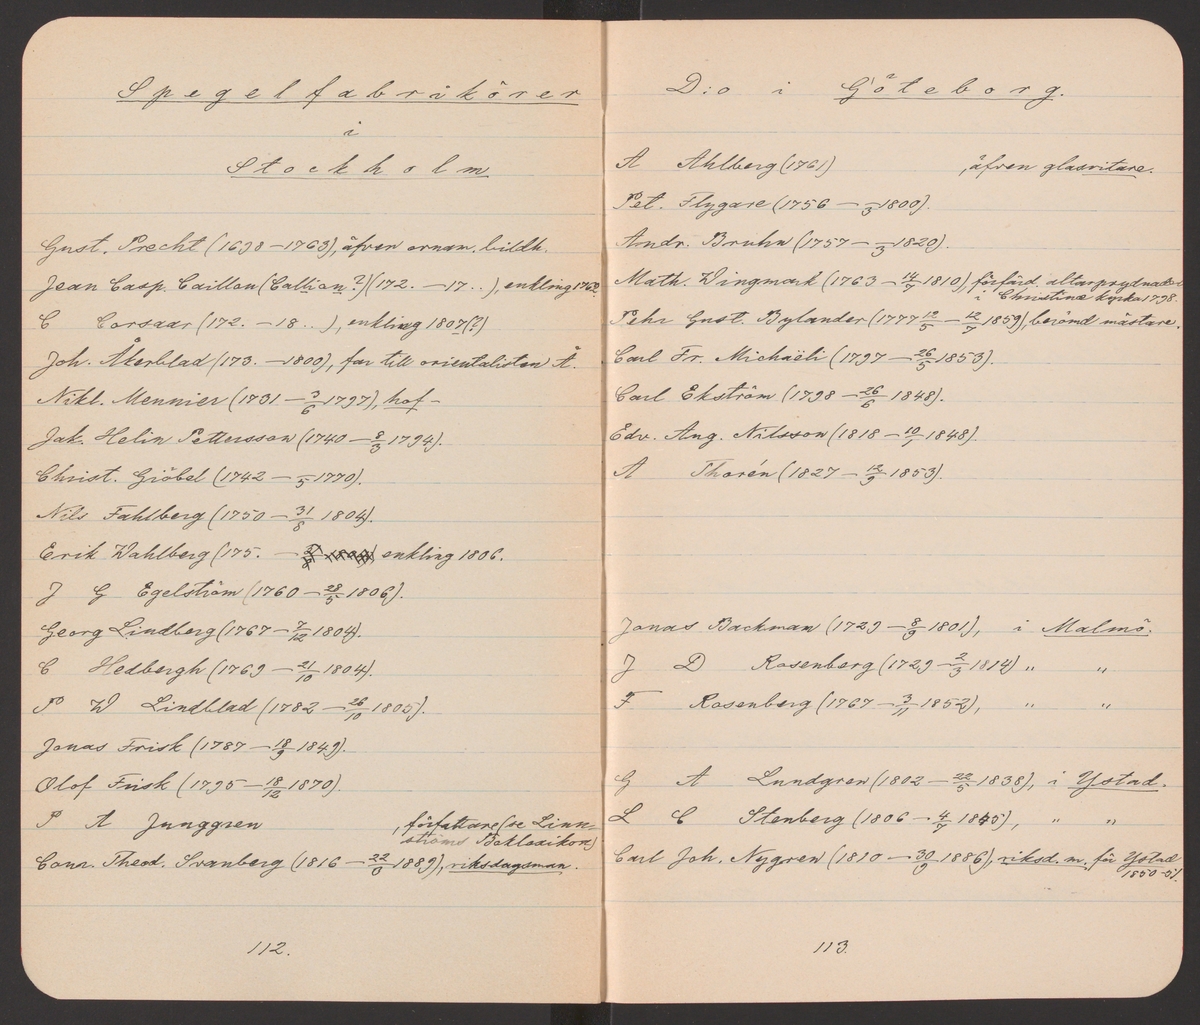 Spegelfabrikörer
i
Stockholm
Gust. Precht (1698–1763), äfven ornam. bildh.
Jean Casp. Caillon (Callion?) (172. – 17..), enkling 1760
C Corsaar (172. – 18..), enkling 1807(?)
Joh. Åkerblad (173. – 1800), far till orientalisten Å.
Nikl. Meunier (1731 – 3/6 1797), hof-
Jak. Helin Pettersson (1740 – 8/3 1794).
Christ. Giöbel (1742 – /5 1770).
Nils Fahlberg (1750 – 31/8 1804).
Erik Wahlberg (175. – enkling 1806.
J G Egelström (1760 – 28/5 1806).
Georg Lindberg (1767 – 7/12 1804).
C Hedbergh (1769 – 21/10 1804).
P W Lindblad (1782 – 26/10 1805).
Jonas Frisk (1787 – 18/9 1849).
Olof Frisk (1795 – 18/12 1870).
P A Junggren , författare (se Linn-
ströms Boklexikon)
Conr. Theod. Svanberg (1816 – 1889), riksdagsman.
112.
D:o i Göteborg.
A Ahlberg (1761) , äfven glasritare.
Pet. Flygare (1756 – /3 1800).
Andr. Bruhn (1757 – /3 1820).
Math. Wingmark (1763 – 14/7 1810), förfärd. altarprydnader
i Christinæ kyrka 1798.
Pehr Gust. Bylander (1777 12/5 – 12/7 1859), berömd mästare.
Carl Fr. Michaëli (1797 – 26/5 1853).
Carl Ekström (1798 – 26/6 1848).
Edv. Aug. Nilsson (1818 – 10/1 1848).
A Thorén (1827 – 12/9 1853).
Jonas Backman (1729 – 8/9 1801), i Malmö.
J D Rosenberg (1729 – 2/3 1814) " "
F Rosenberg (1767 – 3/11 1852), " "
G A Lundgren (1802 – 22/5 1838), i Ystad.
L C Stenberg (1806 – 4/7 1845), " "
Carl Joh. Nygren (1810 – 30/9 1886), riksd. m. för Ystad
1850–51.
113.